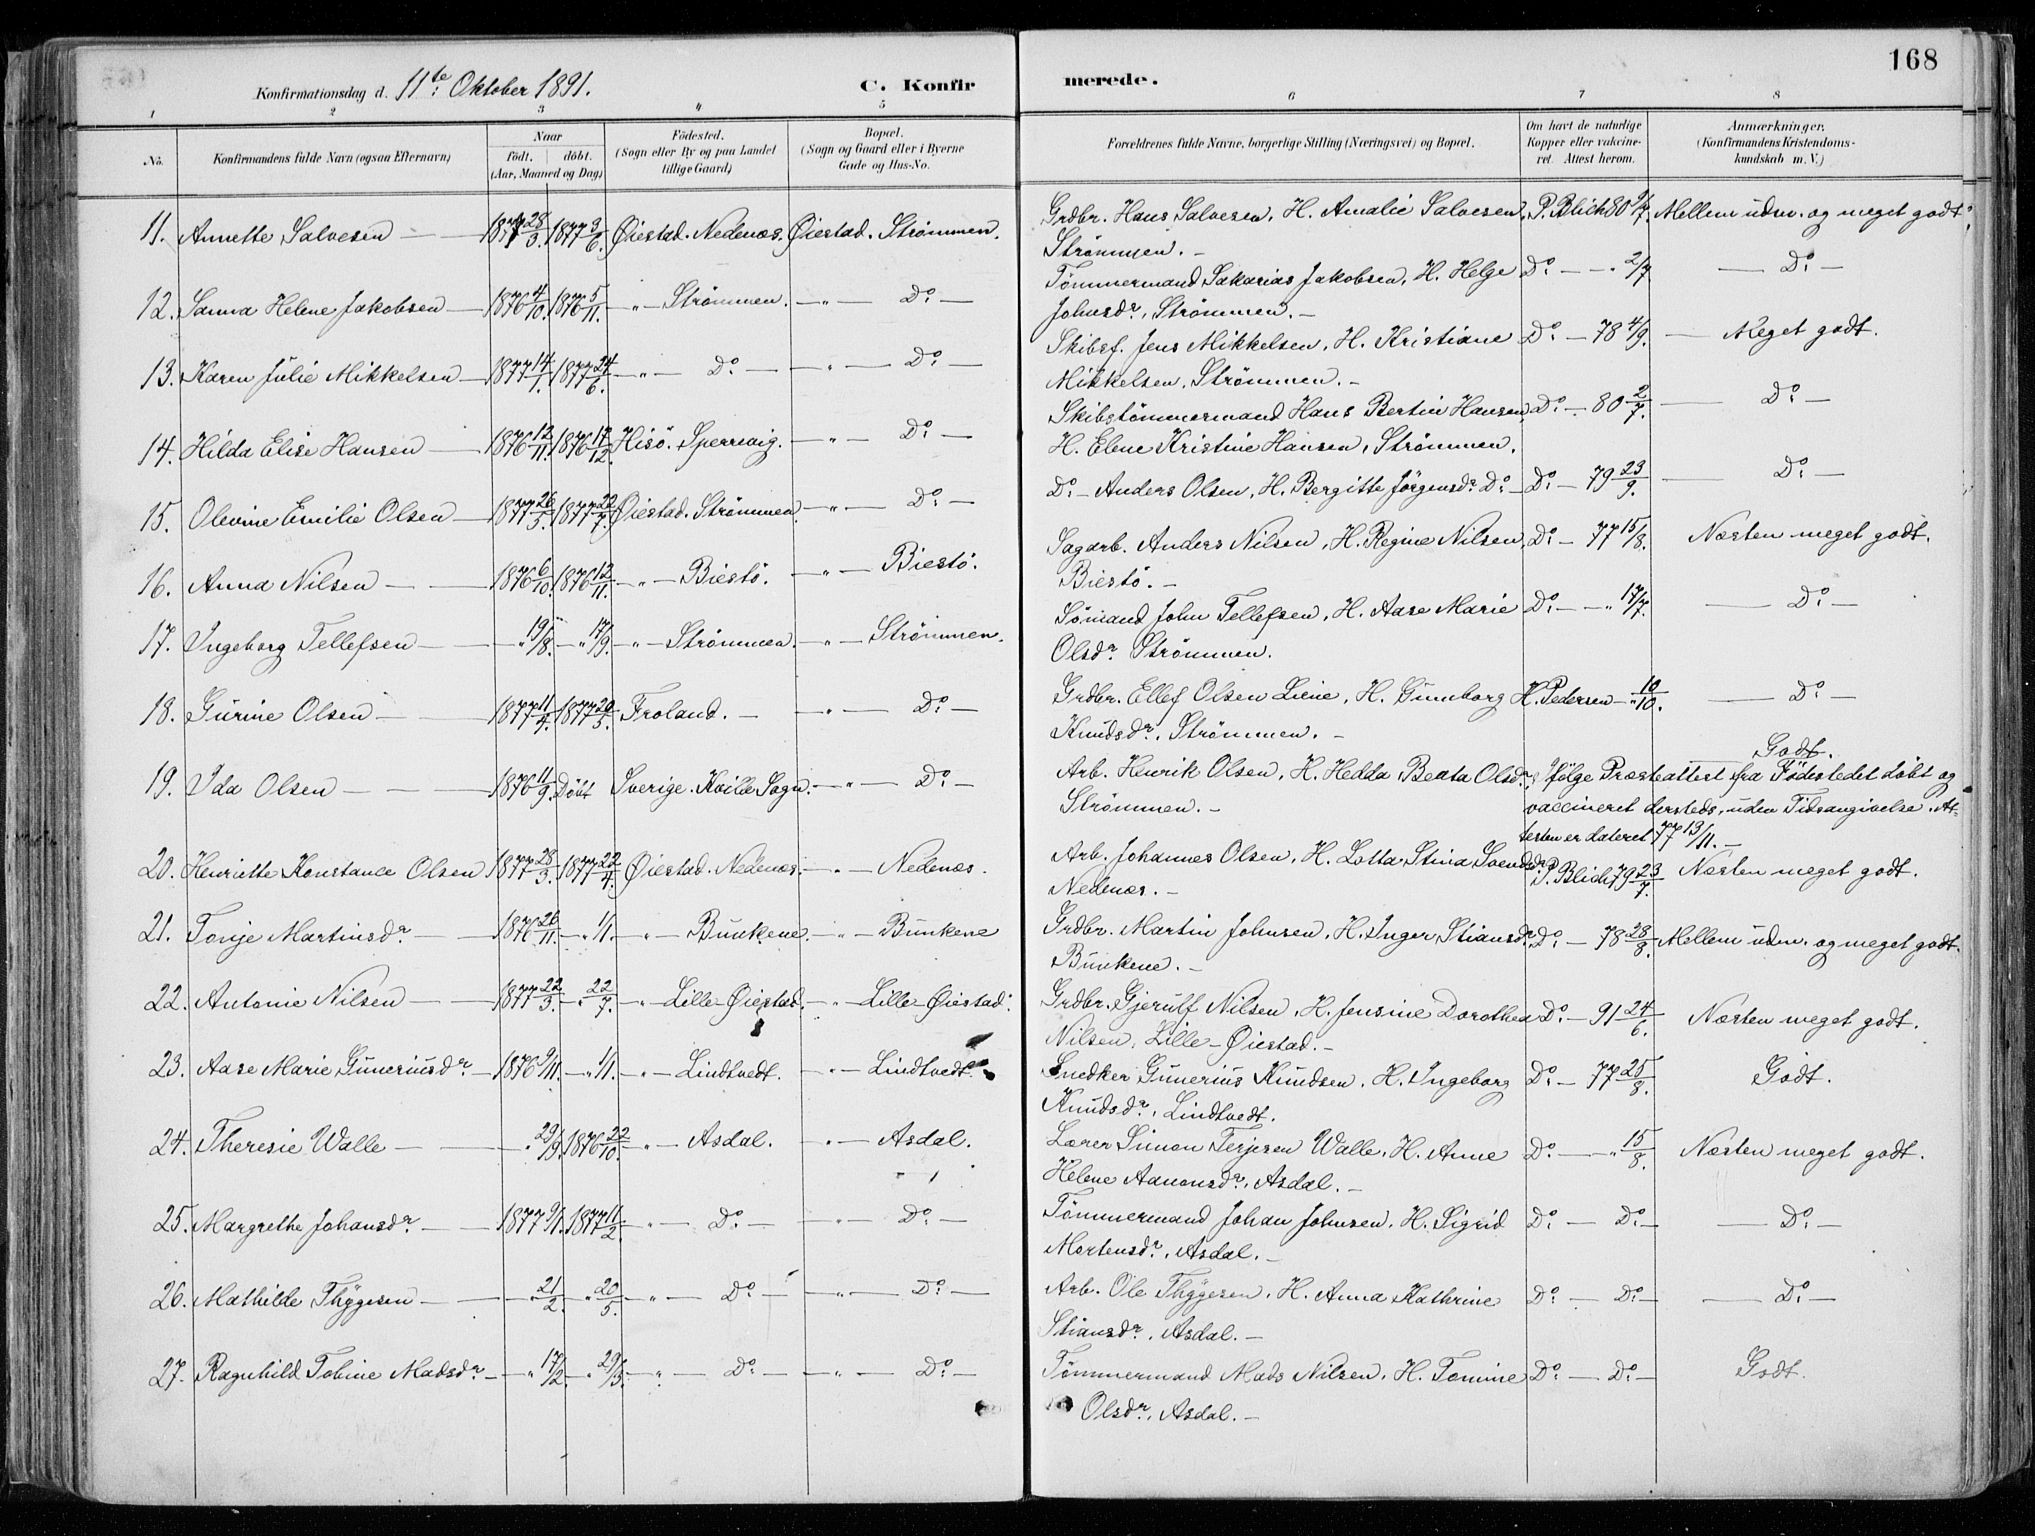 168
Konfirmationsdag d. 11te Oktober 1891. C. Konfirmerede.
1 2 3 4 5 6 7 8
No. Konfirmandens fulde Navn (ogsaa Efternavn) Naar født. døbt. (Aar, Maaned og Dag) Fødested. (Sogn eller By og paa Landet tillige Gaard) Bopæl. (Sogn og Gaard eller i Byerne Gade og Hus-No. Forældrenes fulde Navne, borgerlige Stilling (Næringsvei) og Bopæl. Om havt de naturlige Kopper eller vakcineret. Attest herom. Anmærkninger. (Konfirmandens Kristendomskundskab m. V.)
11. Annette Salvesen — 1877 28/3. 1877 3/6. Øiestad. Nedenæs. Øiestad. Strømmen. Grdbr. Hans Salvesen, H. Amalie Salvesen, P. Blich 80 1/7. Mellem udm. og meget godt.
Strømmen. —
12. Sanna Helene Jakobsen — 1876 4/10. 1876 5/11. — " — Strømmen. — " — Do — Tømmermand Sakarias Jakobsen, H. Helge Do — " 2/7 — Do —
Johnsdr, Strømmen. —
13. Karen Julie Mikkelsen — 1877 14/1. 1877 24/6. — " — Do — — " — Do — Skibsf. Jens Mikkelsen, H. Kristiane Do — 78 4/9. — Meget godt.
Mikkelsen, Strømmen. —
14. Hilda Elise Hansen — 1876 12/11. 1876 17/12. Hisø. Sperrevig. — " — Do — Skibstømmermand Hans Bertin Hansen, Do — 80 2/7. — Do —
H. Elene Kristine Hansen, Strømmen.
15. Olevine Emilie Olsen — 1877 26/5. 1877 22/7. Øiestad. Strømmen. — " — Do — Do — Anders Olsen, H. Bergitte Jørgensdr Do — Do — 79 23/9. — Do —
16. Anna Nilsen — 1876 6/10. 1876 12/11. — " — Biestø. — " — Biestø. Sagarb. Anders Nilsen, H. Regine Nilsen, Do — 77 15/8. Næsten meget godt.
Biestø. —
17. Ingeborg Tellefsen — — " 19/8. — " 17/9. — " — Strømmen. — " — Strømmen. Sømand John Tellefsen, H. Aase Marie Do — " 17/7. — Do —
Olsdr Strømmen.
18. Gurine Olsen — 1877 11/4. 1877 20/5. Froland. — — " — Do — Grdbr. Ellef Olsen Liene, H. Gunnborg H. Pedersen — " 10/10. — Do —
Knudsdr, Strømmen. —
Godt.
19. Ida Olsen — 1876 11/9. Døbt Sverige. Kville Sogn. — " — Do — Arb. Henrik Olsen, H. Hedda Beata Olsdr, Ifølge Præsteattest fra Fødestedet døbt og
Strømmen. — vaccineret dersteds, uden Tidsangivelse. At-
testen er dateret 77 13/11. —
20. Henriette Konstance Olsen 1877 28/3. 1877 22/4. Øiestad. Nedenæs. — " — Nedenæs. Arb. Johannes Olsen, H. Lotta Stina Svendsdr P. Blich 79 23/7. Næsten meget godt.
Nedenæs. —
21. Tonje Martinsdr — 1876 26/11. — " 1/1. — " — Bunkene. — " — Bunkene Grdbr. Martin Johnsen, H. Inger Stiansdr, Do — 78 28/8. Mellem udm. og meget godt.
Bunkene. —
22. Antonie Nilsen — 1877 22/3. — " 22/7. — " — Lille-Øiestad. — " — Lille-Øiestad. Grdbr. Gjerulf Nilsen, H. Jensine Dorothea Do — 91 24/6. Næsten meget godt.
Nilsen, Lille-Øiestad. —
23. Aase Marie Guneriusdr — 1876 9/11. — " 1/1. — " — Lindtvedt. — " — Lindtvedt. Snedker Gunerius Knudsen, H. Ingeborg Do — 77 25/8. Godt.
Knudsdr, Lindtvedt.
24. Theresie Walle — " 29/9. 1876 22/10. " — Asdal. " — Asdal. Lærer Simon Terjesen Walle, H. Anne Do — " 15/8. Næsten meget godt.
Helene Aanonsdr, Asdal. —
25. Margrethe Johansdr — 1877 9/1. 1877 11/2. — " — Do — " — Do — Tømmermand Johan Johnsen, H. Sigrid Do — Do — — Do —
Mortensdr, Asdal. —
26. Mathilde Thygesen — — " 21/2. — " 20/5. — " — Do — — " — Do — Arb. Ole Thygesen, H. Anna Kathrine Do — Do — — Do —
Stiansdr, Asdal. —
27. Ragnhild Tobine Madsdr — — " 17/2. — " 29/3. " — Do — — " — Do — Tømmermand Mads Nilsen, H. Tomine Do — Do — Godt.
Olsdr, Asdal. —